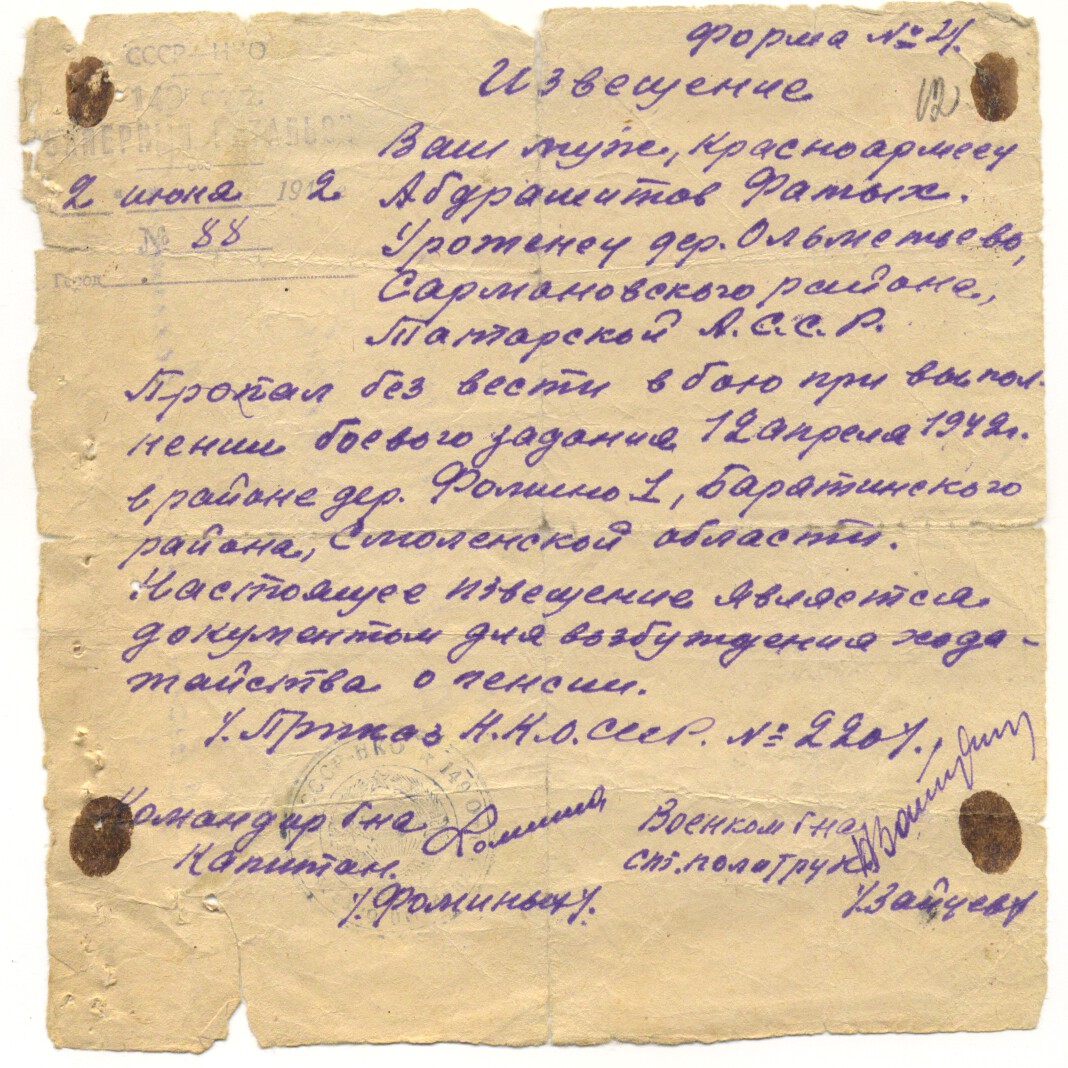 Форма № 4/.
Извещение
12
СССР-НКО
149
САПЕРНЫЙ БАТАЛЬОН
2 июня 1942
№ 88
Город
Ваш муж, Красноармеец
Абдрашитов Фатых.
Уроженец дер. Ольметьево,
Сармановского района,
Татарской А.С.С.Р.
Пропал без вести в бою при выпол-
нении боевого задания 12 апреля 1942 г.
в районе дер. Фомино 1, Барятинского
района, Смоленской области.
Настоящее извещение является
документом для возбуждения хода-
тайства о пенсии.
/. Приказ Н.К.О. СССР. № 220/.
СССР-НКО * 149 О
Командир б-на
Капитан.
/. Фоминых/.
Военком б-на
ст. политрук
/. Зайцев/